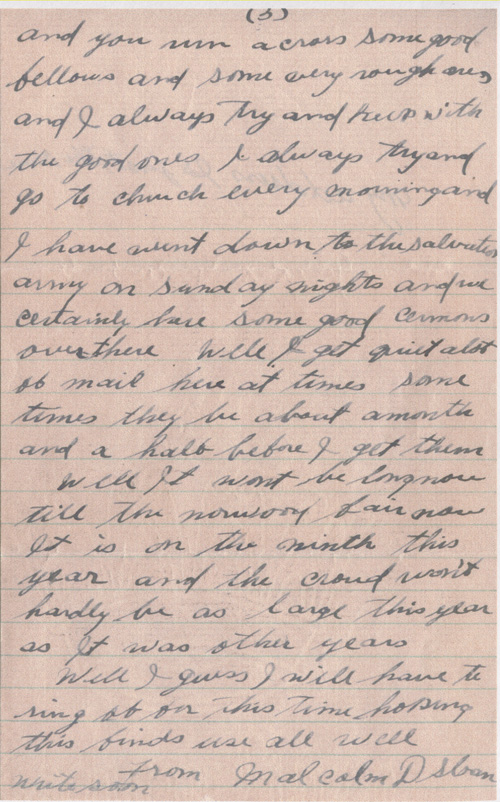 (3)
and you run across some good
fellows and some very rough ones
and I always try and keep with
the good ones I always try and
go to church every morning and
I have went down to the salvation
army on sunday nights and we
certainly here some good cermons
over there Well I get quiet alot
of mail here at times some
times they be about amonth
and a half before I get them
Well It wont be long now
till the norwood fair now
It is on the ninth this
year and the croud won't
hardly be as large this year
as It was other years
Well I guess I will have to
ring of for this time hoping
this finds use all well
write soon From Malcolm D Sloan